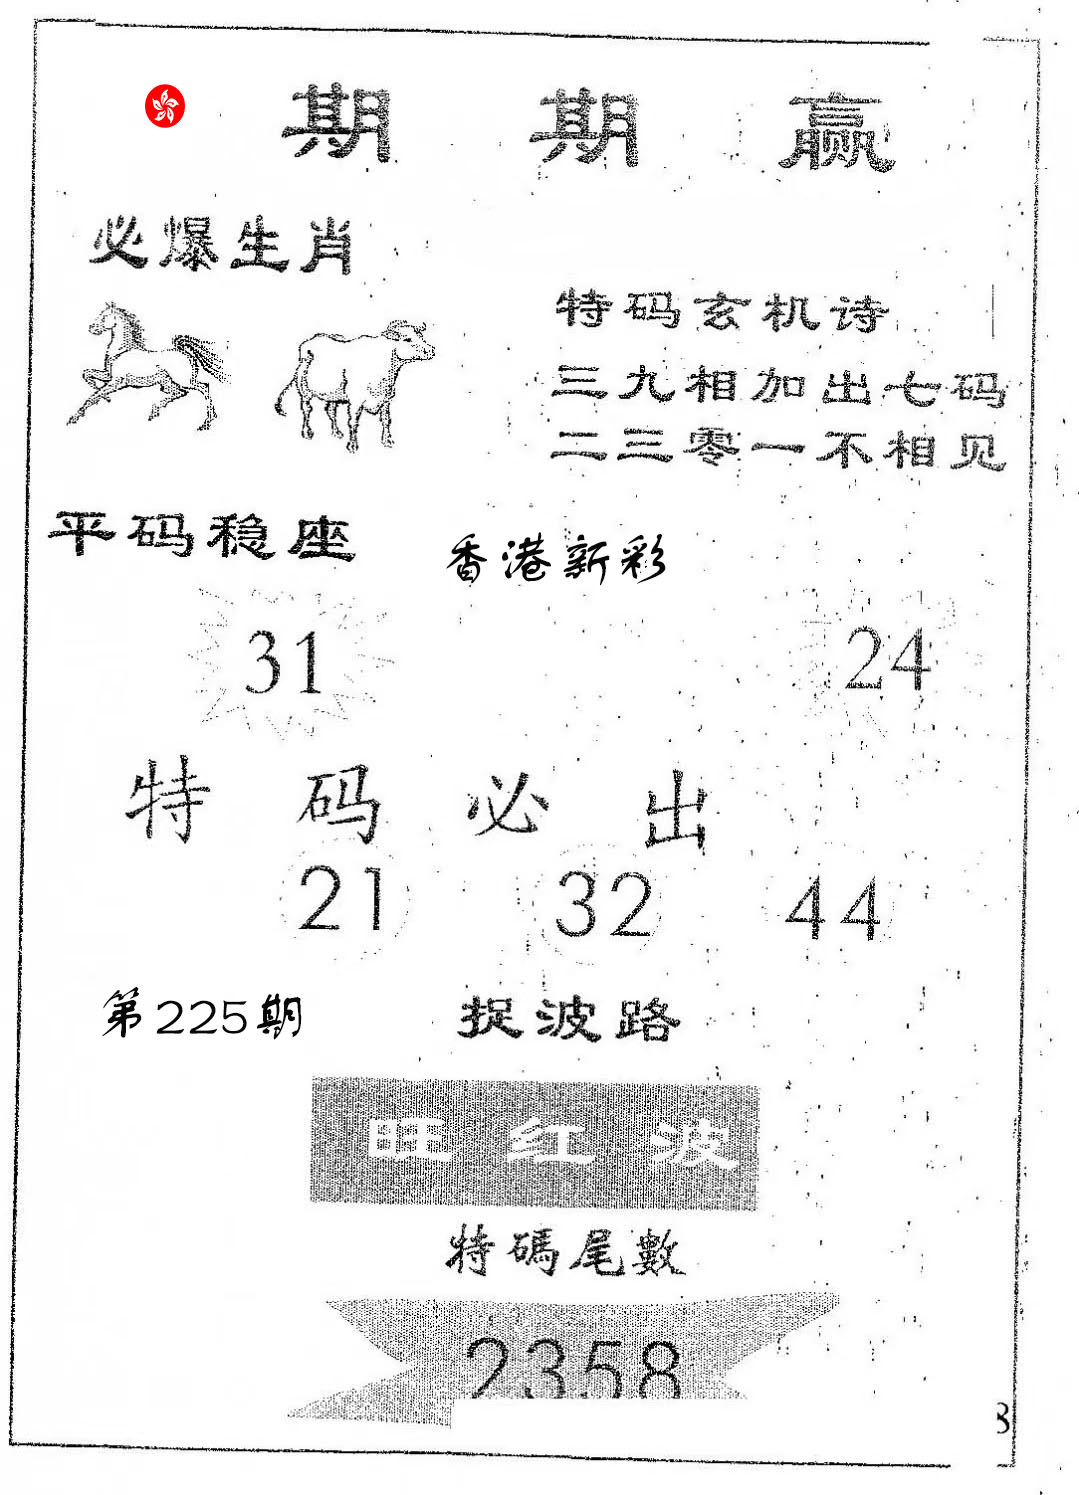 期期赢
必爆生肖
特码玄机诗
三九相加出七码
二三零一不相见
平码稳座
香港新彩
31
24
特码必出
21 32 44
第225期
捉波路
旺红波
特碼尾數
2358
8